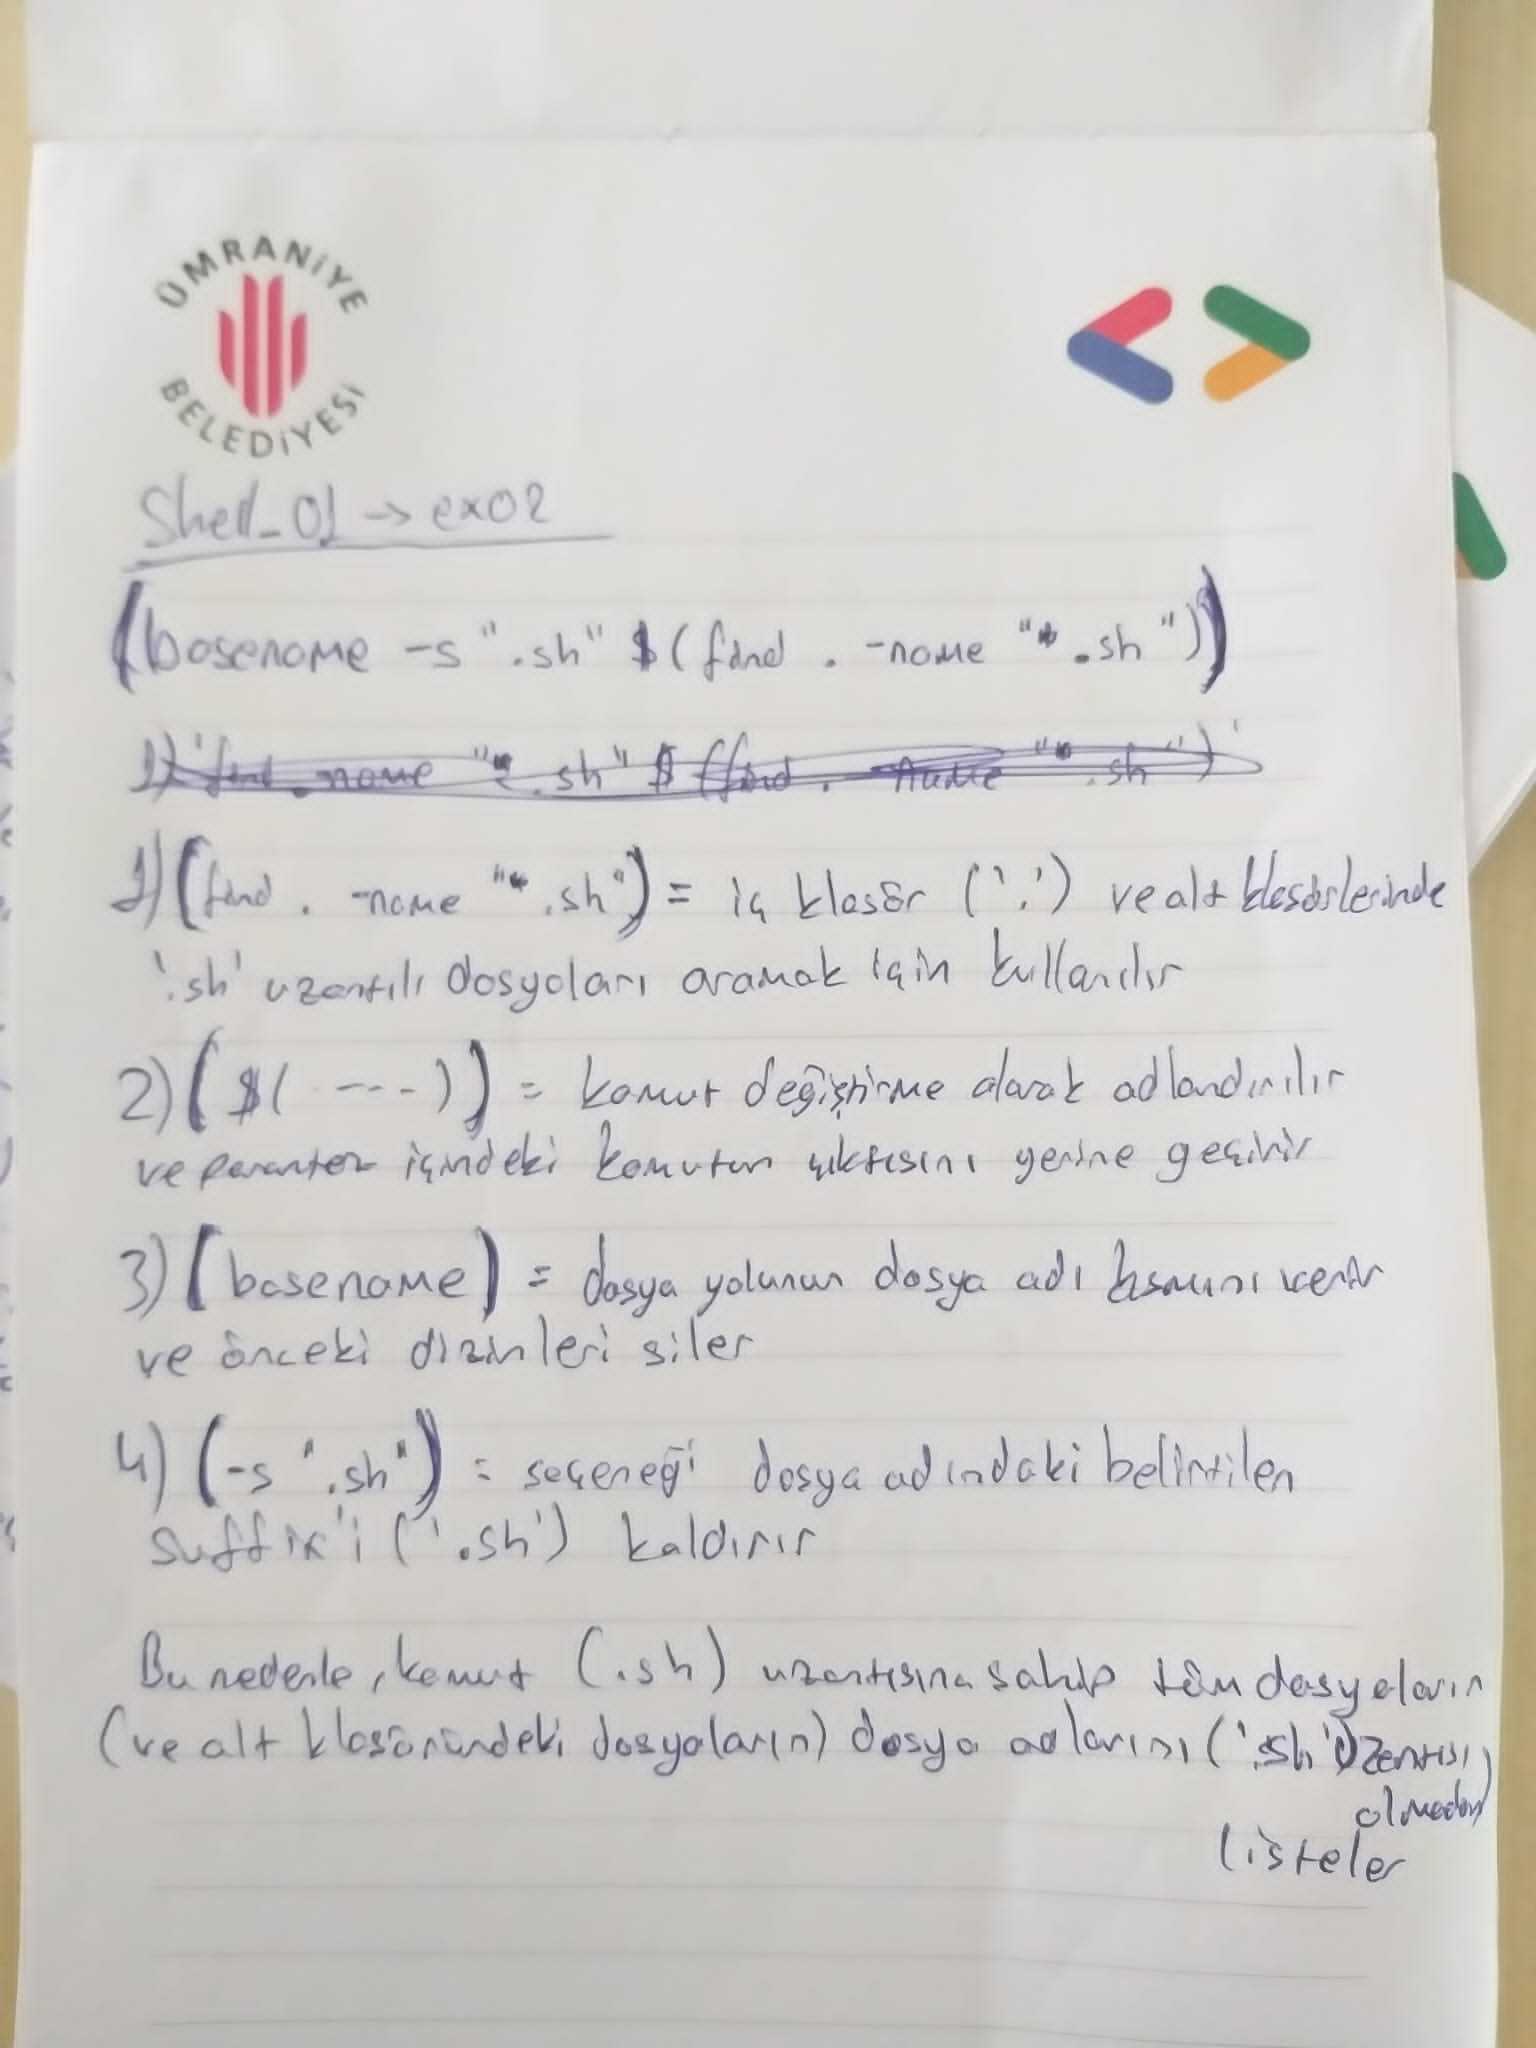 ÜMRANİYE
BELEDİYESİ
Shell_01 → ex02
(basename -s ".sh" $(find . -name "*.sh"))
1) 'find . name "*.sh" $(find . -name "*.sh")'
1) (find . -name "*.sh") = iç klasör ('.') ve alt klasörlerinde
'.sh' uzantılı dosyaları aramak için kullanılır
2) ($( ---)) = komut değiştirme olarak adlandırılır
ve parantez içindeki komutun çıktısını yerine geçirir
3) (basename) = dosya yolunun dosya adı kısmını verir
ve önceki dizinleri siler
4) (-s ".sh") = seçeneği dosya adındaki belirtilen
suffix'i ('.sh') kaldırır
Bu nedenle, komut (.sh) uzantısına sahip tüm dosyaların
(ve alt klasöründeki dosyaların) dosya adlarını ('.sh' uzantısı
olmadan)
listeler